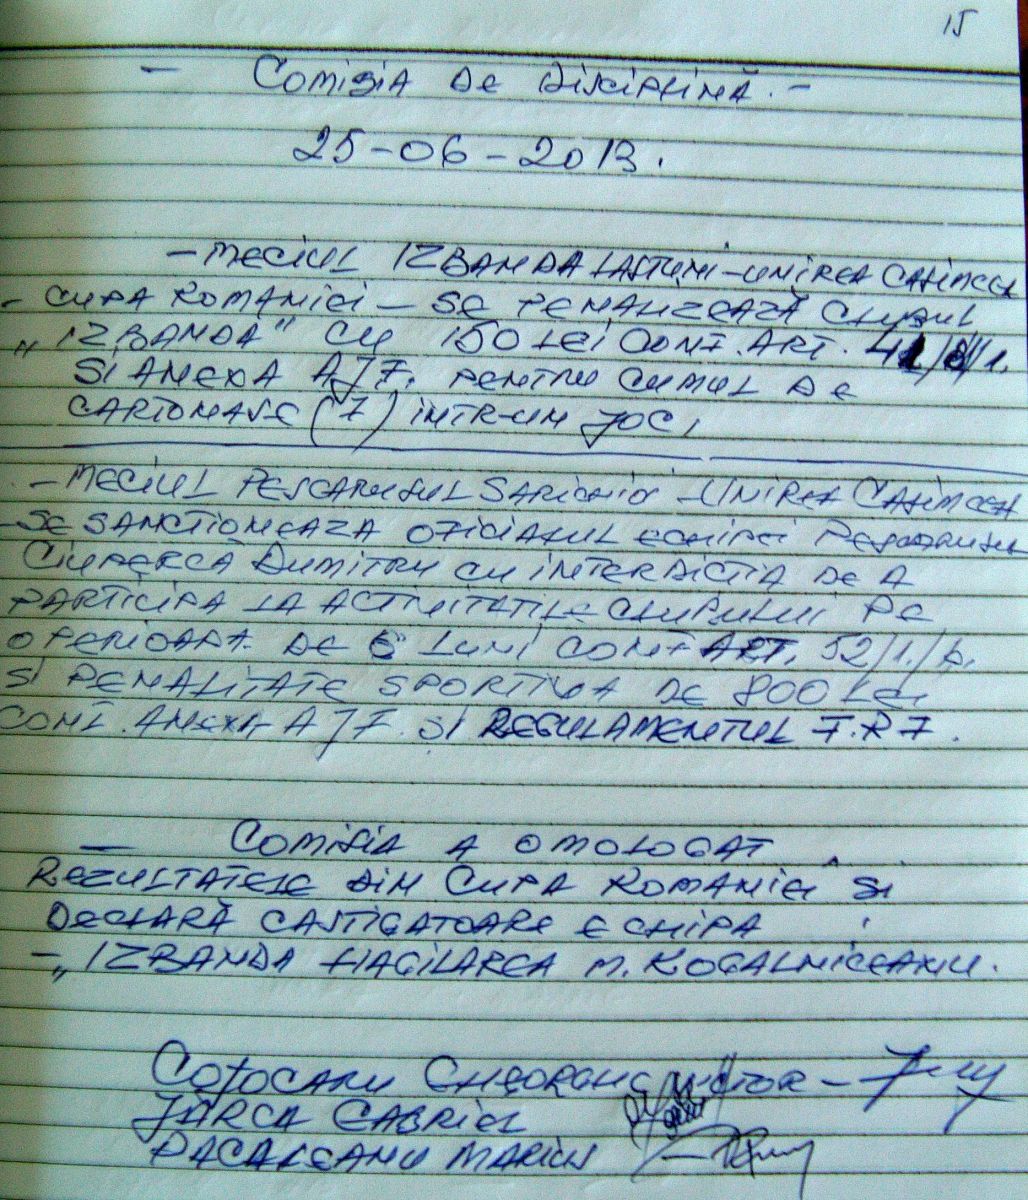 15
- COMISIA DE DISCIPLINĂ. -
25-06-2013.
- MECIUL IZBANDA LASTUNI - UNIREA CASIMCEA
- CUPA ROMANIEI - SE PENALIZEAZĂ CLUBUL
"IZBANDA" CU 150 LEI CONF. ART.
SI ANEXA AJF. PENTRU CUMUL DE
CARTONASE (7) INTR-UN JOC,
- MECIUL PESCARUSUL SARICHIOI - UNIREA CASIMCEA
- SE SANCTIONEAZA OFICIALUL ECHIPEI PESCARUSUL
CIUPERCĂ DUMITRU CU INTERDICTIA DE A
PARTICIPA LA ACTIVITATILE CLUBULUI PE
O PERIOADA DE 6 LUNI CONF ART. 52/1./b.
SI PENALITATE SPORTIVA DE 800 LEI
CONF. ANEXA AJF. SI REGULAMENTUL F.R.F.
- COMISIA A OMOLOGAT
REZULTATELE DIN CUPA ROMANIEI SI
DECLARĂ CASTIGATOARE ECHIPA
- "IZBANDA HAGILAREA M. KOGALNICEANU.
COJOCARU GHEORGHE VICTOR -
JURCA GABRIEL
PACALEANU MARIUS